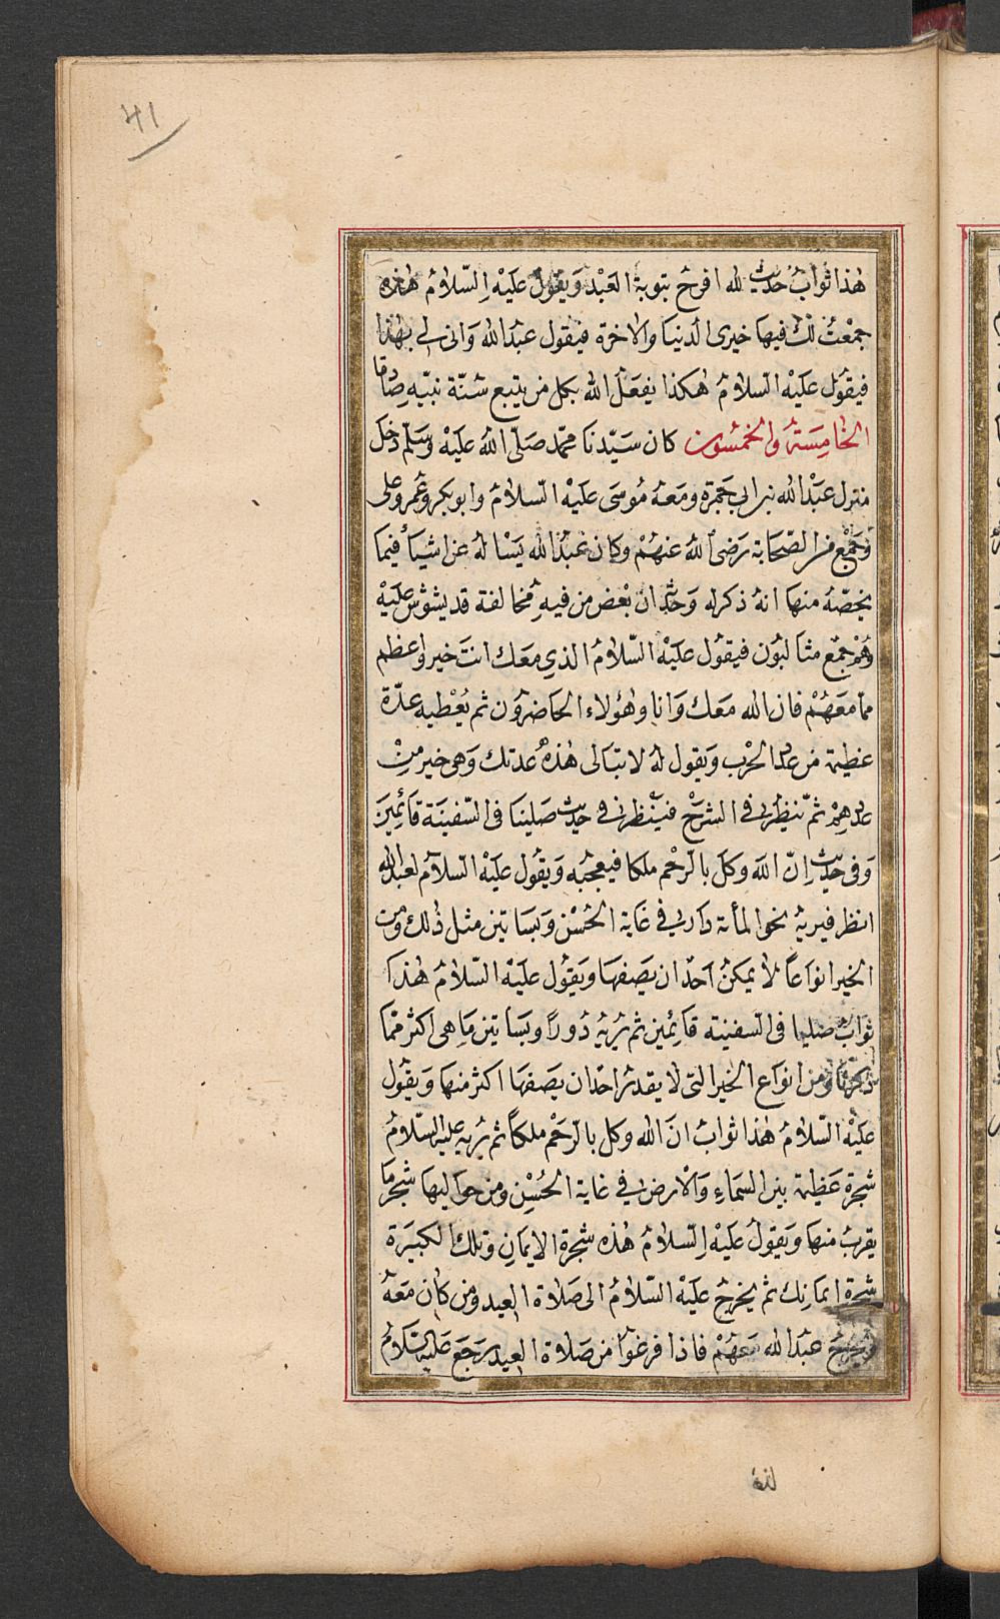 41
هٰذا ثوابُ حديث لله افرح بتوبة العَبْد وَيقولُ عليْه السّلامُ هٰذه
جمعْتُ لك فيها خيرى الدنيا والاخرة فيقول عبدُ الله وَانى لى بهٰذا
فيقول عليْه السلامُ هٰكذا يفعَلُ الله بكل من يتبع سُنّة نبيّه صادقا
الخامِسَةُ والخمسُون كان سَيّدنا محمّد صَلّى اللهُ عَليْهِ وَسَلّم دَخل
منزل عَبْد الله بن ابي جَمرة ومَعهُ مُوسَى عَليْه السّلامُ وابوبكر وعُمر وعلى
وجمْع من الصّحابة رَضىَ اللهُ عنهُمْ وكان عَبْدُ الله يَسْالهُ عن اشياء فيما
يخصّهُ منها انهُ ذكر له وَحشة ان بعْض من فيه مُخالفة قد يشوّش عليْه
وَهُمْ جمْع متالبُون فيقول عليْه السّلامُ الذي معَك انتَ خير واعظم
ممّا معَهُمْ فان الله معَك وَانا وهٰؤلاء الحاضرُون ثم يُعْطيه عدّة
عظيمة من عدد الحرْب وَيقول لهُ لا تبالى هٰذه عدتك وَهى خير منْ
عددهِمْ ثمّ ينظر فى الشرْح فينظر فى حديث صلينا فى السّفينَة قائمينَ
وَفى حديث اِنّ اللهَ وكلَ بالرّحْم ملكا فيعجبُه وَيقُول عليْه السّلامُ لعبد الله
انظر فيريهُ نحوا لمأتة دار فى غايَة الحُسْن وَبسَاتين مثل ذٰلك ومن
الخير انوَاعاً لا يمكنُ احَدٌ ان يَصَفهَا وَيقُول عليْه السّلامُ هٰذا
ثوابُ صلينا فى السفينة قائمين ثم يُريهُ دُوراً وبسَاتين مَا هى اكثر ممّا
ذكرْنا ومن انوَاع الخيرالتى لا يقدرُ احَدٌ ان يَصَفهَا اكثر منهَا وَيقُول
عليْه السّلامُ هٰذا ثوابُ انّ الله وكل بالرّحْم ملكاً ثم يُريه عليْه السّلامُ
شجرة عَظيمة بين السّمَاءِ وَالأرض فى غاية الحُسْن ومن حوَاليهَا شجر مَا
يقربُ منهَا وَيقُولُ عَليْهِ السّلامُ هٰذه شجرة الايمَانِ وَتلك الكبيرَة
شجرة ايمَانِك ثم يخرجُ عليْه السّلامُ الى صَلاة العيد ومن كان معَهُ
وَيخرجُ عبْد الله معَهُمْ فاذا فرغوا من صَلاة العيد رَجَعَ عَليْه السّلامُ